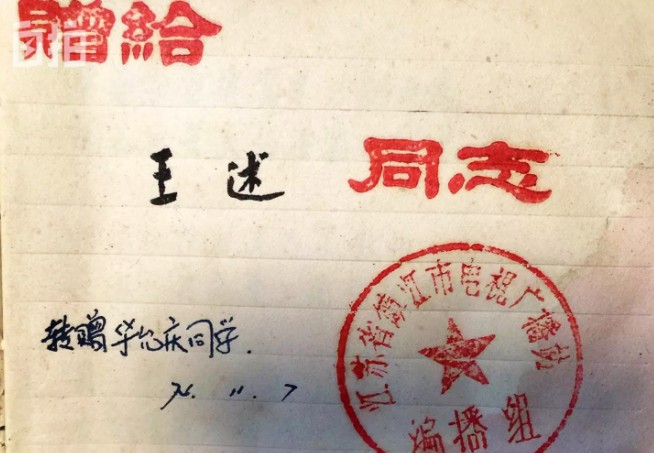 赠给
王述 同志
转赠华允庆同学.
76.11.7
江苏省镇江市电视广播站
编播组